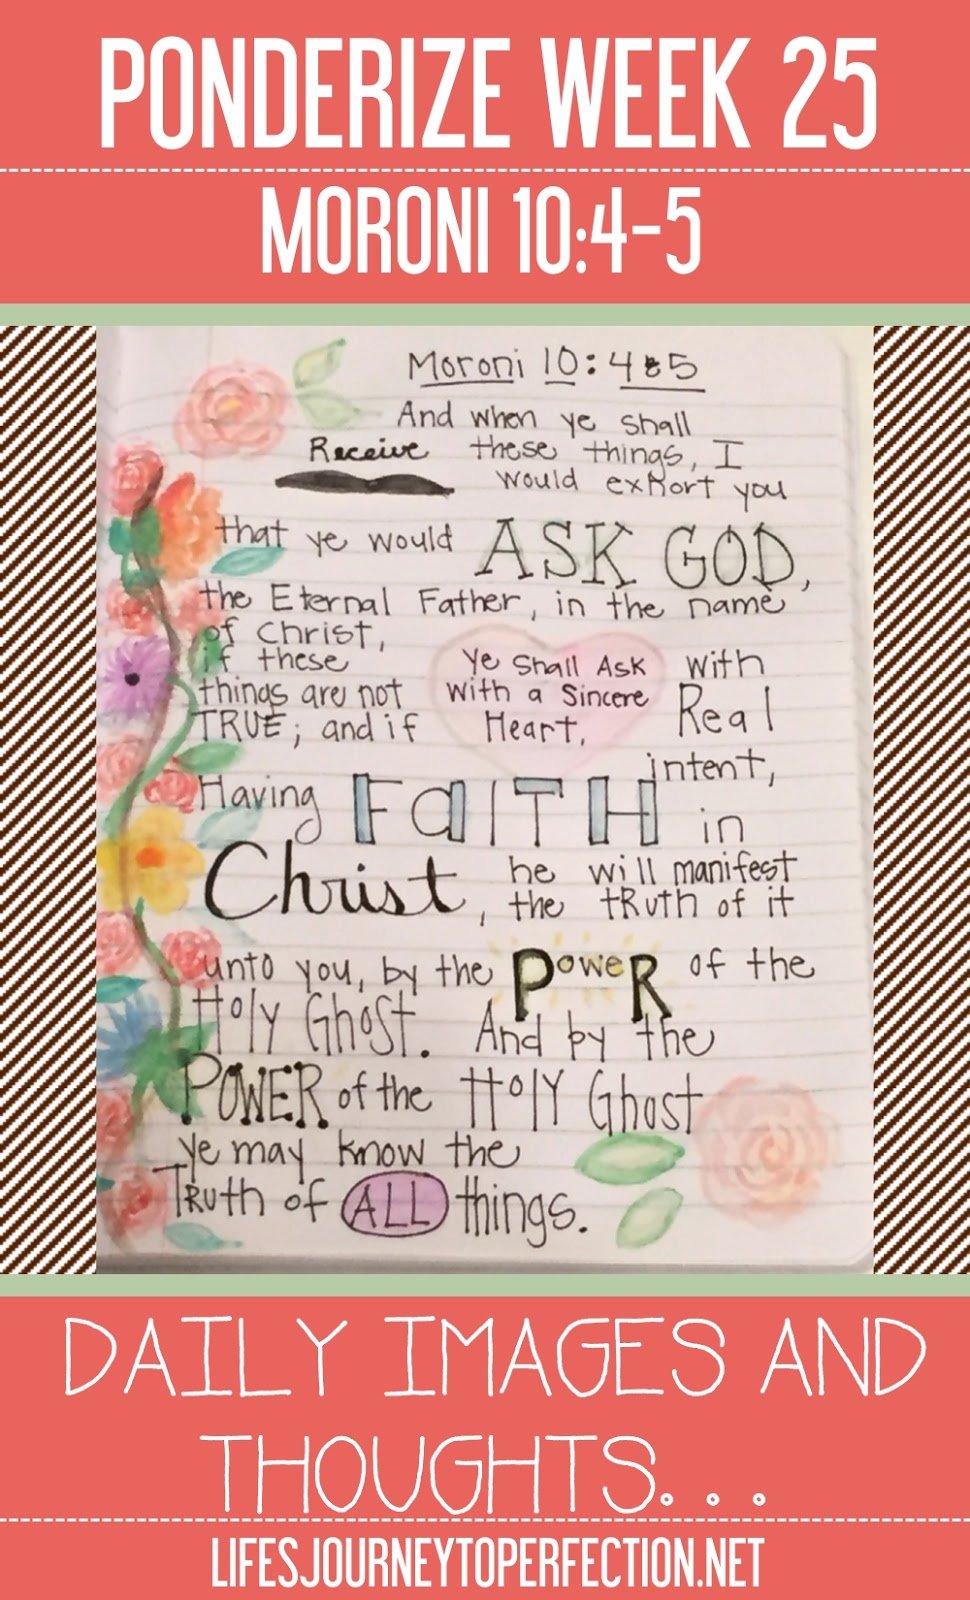 PONDERIZE WEEK 25
MORONI 10:4-5
Moroni 10: 4 & 5
And when ye shall
Receive these things, I
would exhort you
that ye would ASK GOD,
the Eternal Father, in the name
of Christ,
if these
things are not
TRUE; and if
Ye Shall Ask
With a Sincere
Heart,
with
Real
intent,
Having FaITH in
Christ, he will manifest
the tRuth of it
unto you, by the PoweR of the
Holy Ghost. And by the
POWER of the Holy Ghost
ye may know the
TRuth of ALL things.
DAILY IMAGES AND
THOUGHTS...
LIFESJOURNEYTOPERFECTION.NET